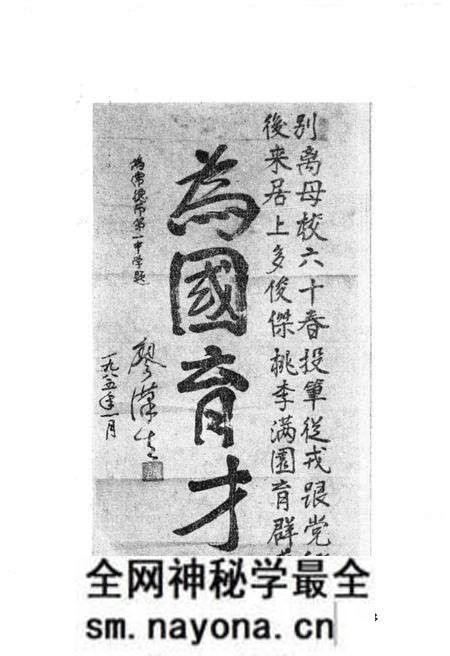 别离母校六十春投筆從戎跟党
後来居上多俊傑桃李满園育群
為國育才
為常德市第一中学題
廖漢生
一九八五年一月
全网神秘学最全
sm.nayona.cn